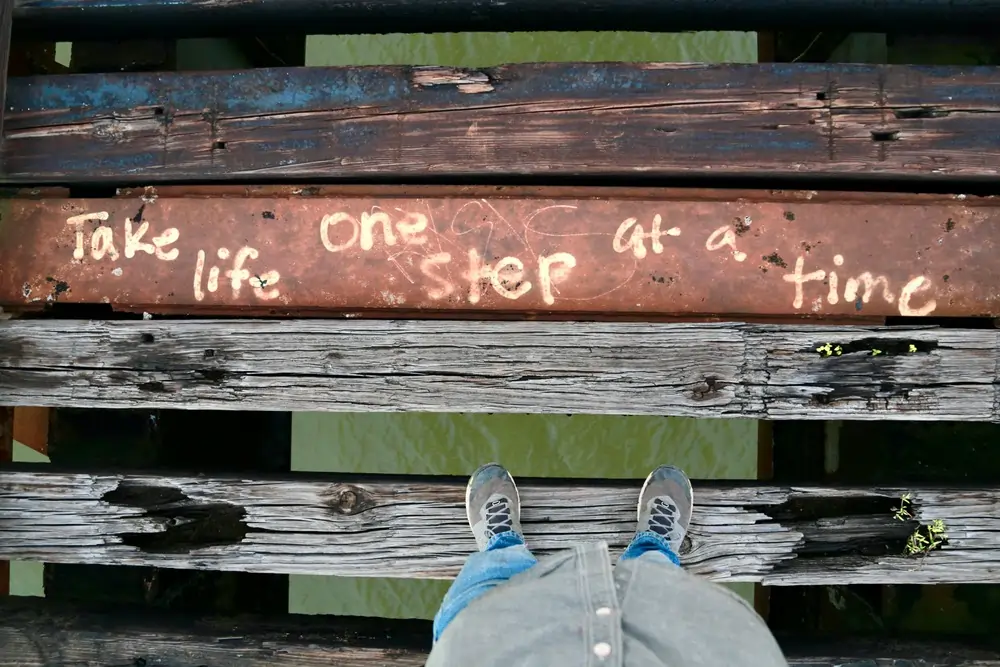 Take life one step at a time